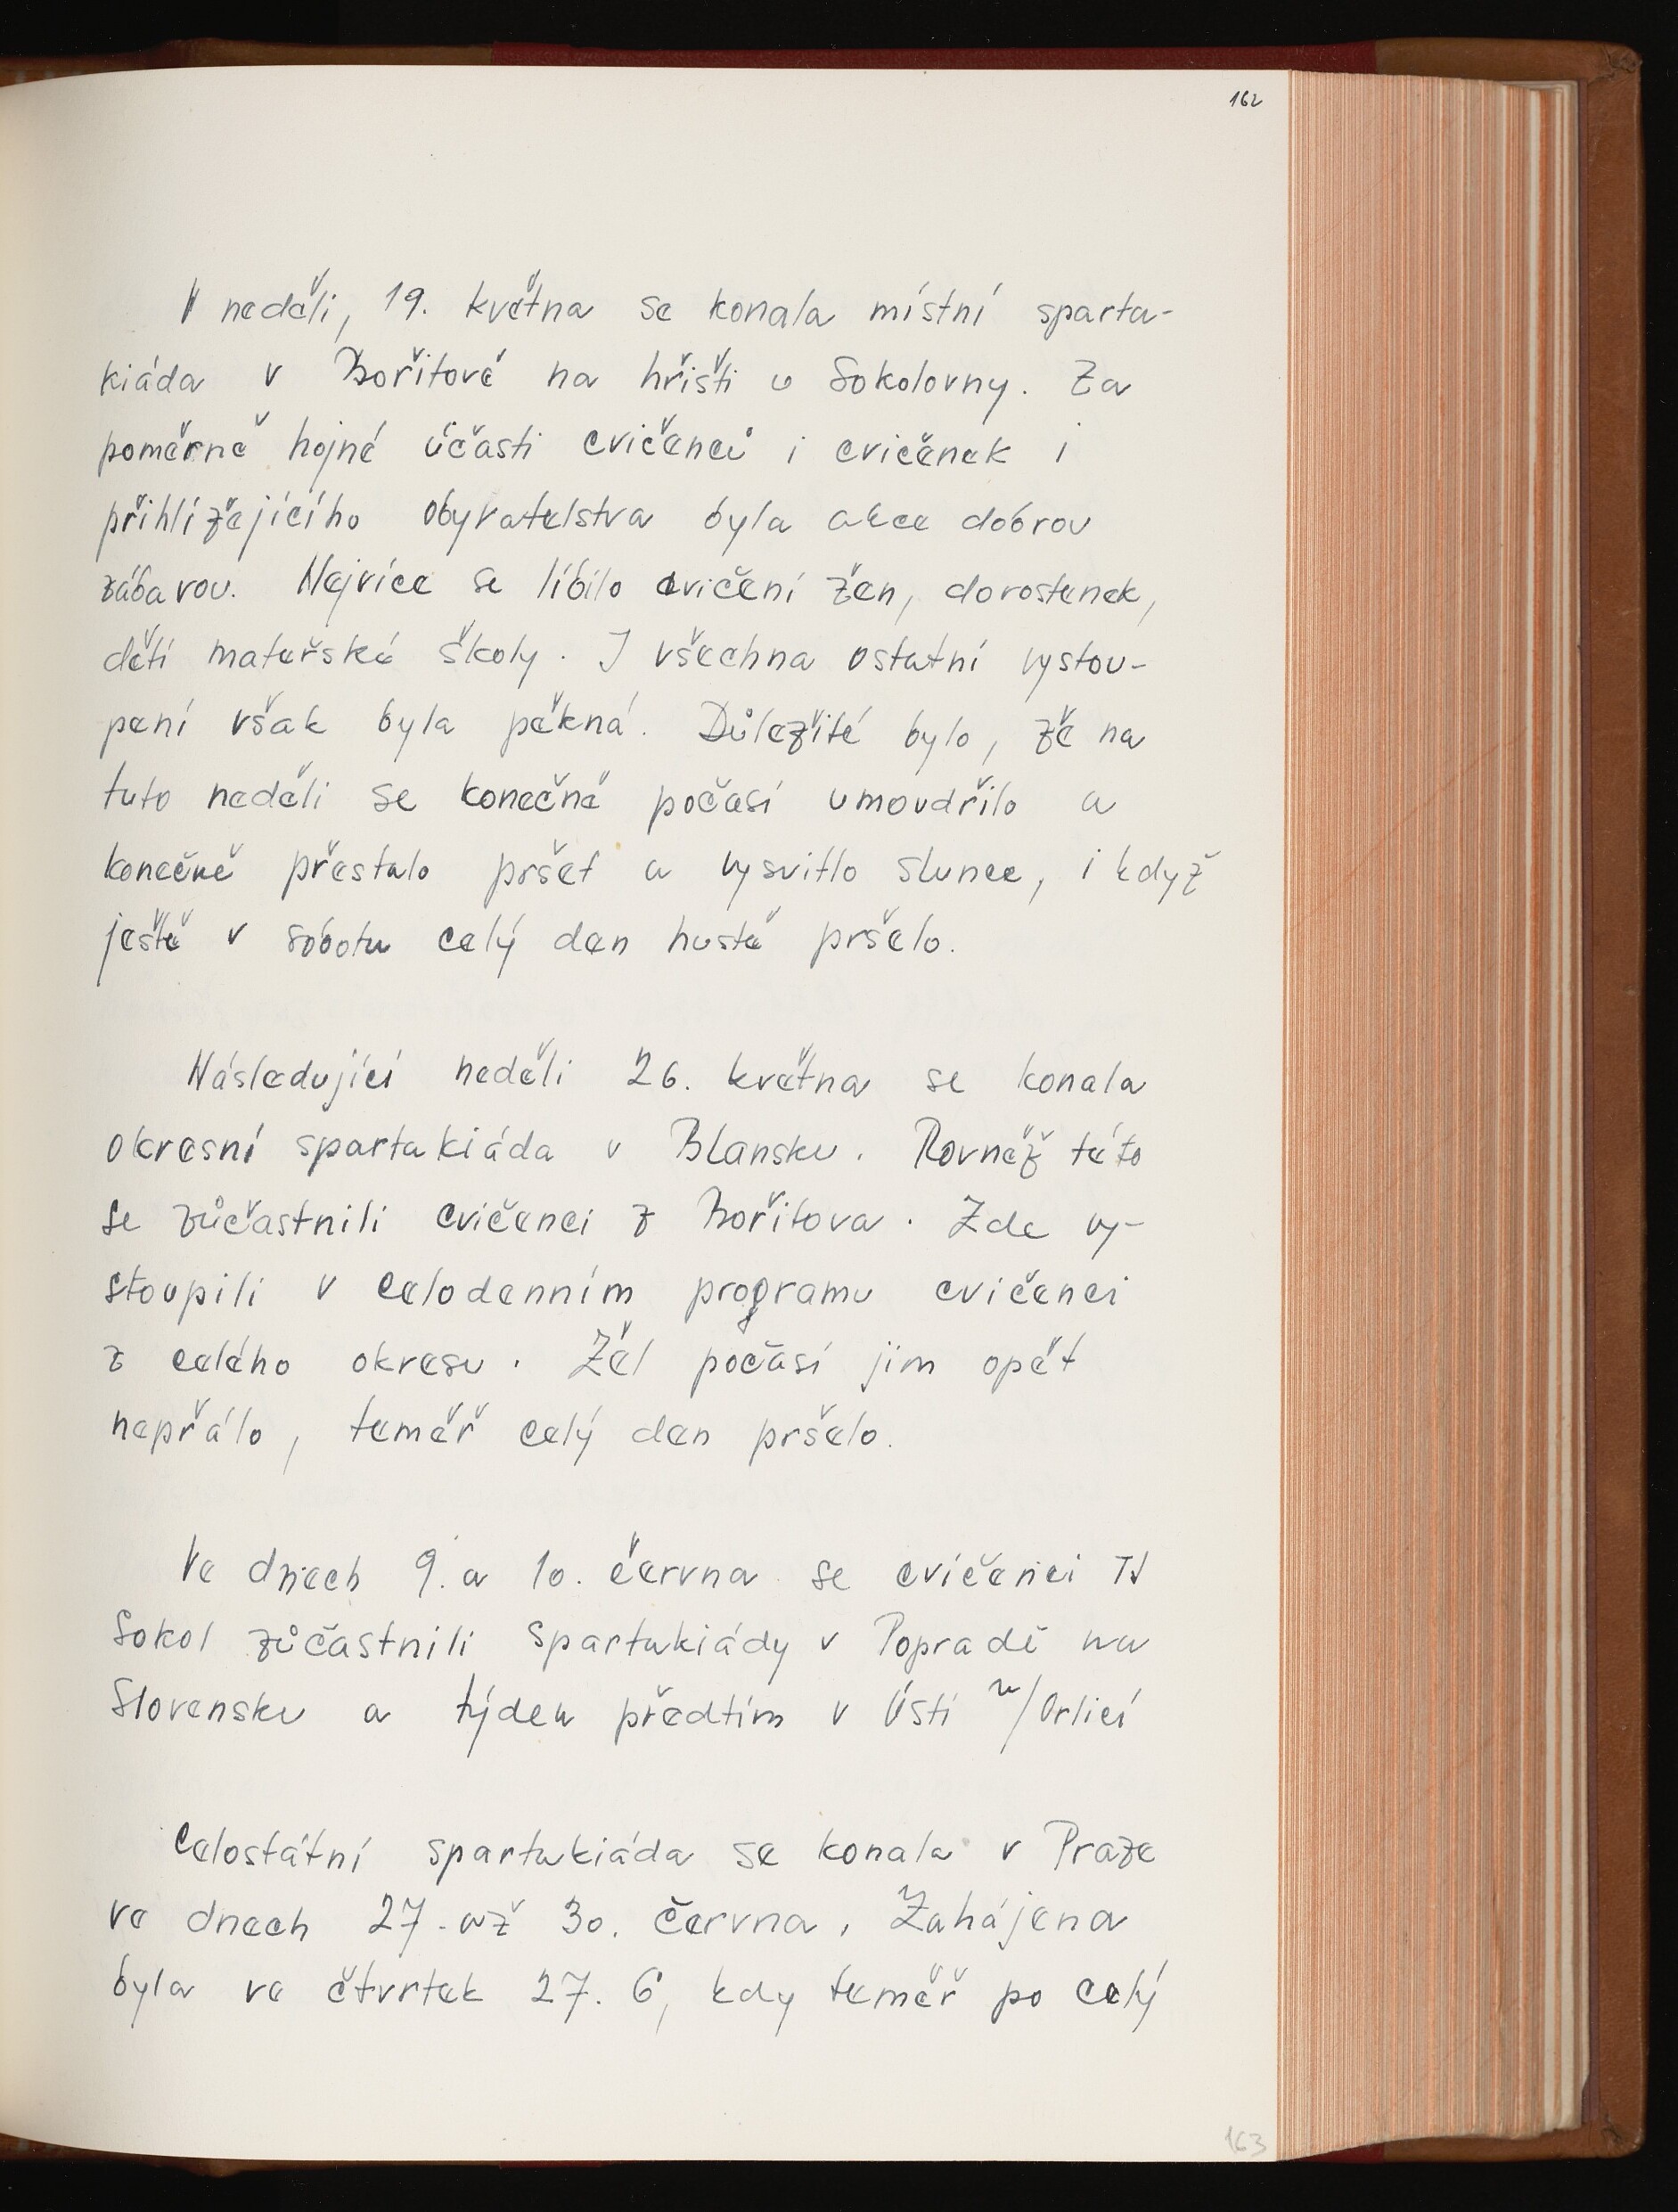 162
V neděli, 19. května se konala místní sparta-
kiáda v Bořitově na hřišti u Sokolovny. Za
poměrně hojné účasti cvičenců i cvičenek i
přihlížejícího obyvatelstva byla akce dobrou
zábavou. Nejvíce se líbilo cvičení žen, dorostenek,
dětí mateřské školy. I všechna ostatní vystou-
pení však byla pěkná. Důležité bylo, že na
tuto neděli se konečně počasí umoudřilo a
konečně přestalo pršet a vysvitlo slunce, i když
ještě v sobotu celý den hustě pršelo.
Následující neděli 26. května se konala
okresní spartakiáda v Blansku. Rovněž této
se zúčastnili cvičenci z Bořitova. Zde vy-
stoupili v celodenním programu cvičenci
z celého okresu. Žel počasí jim opět
nepřálo, téměř celý den pršelo.
Ve dnech 9. a 10. června se cvičenci TJ
Sokol zůčastnili spartakiády v Popradě na
Slovensku a týden předtím v Ústí n/Orlicí
Celostátní spartakiáda se konala v Praze
ve dnech 27. až 30. června. Zahájena
byla ve čtvrtek 27. 6, kdy téměř po celý
163